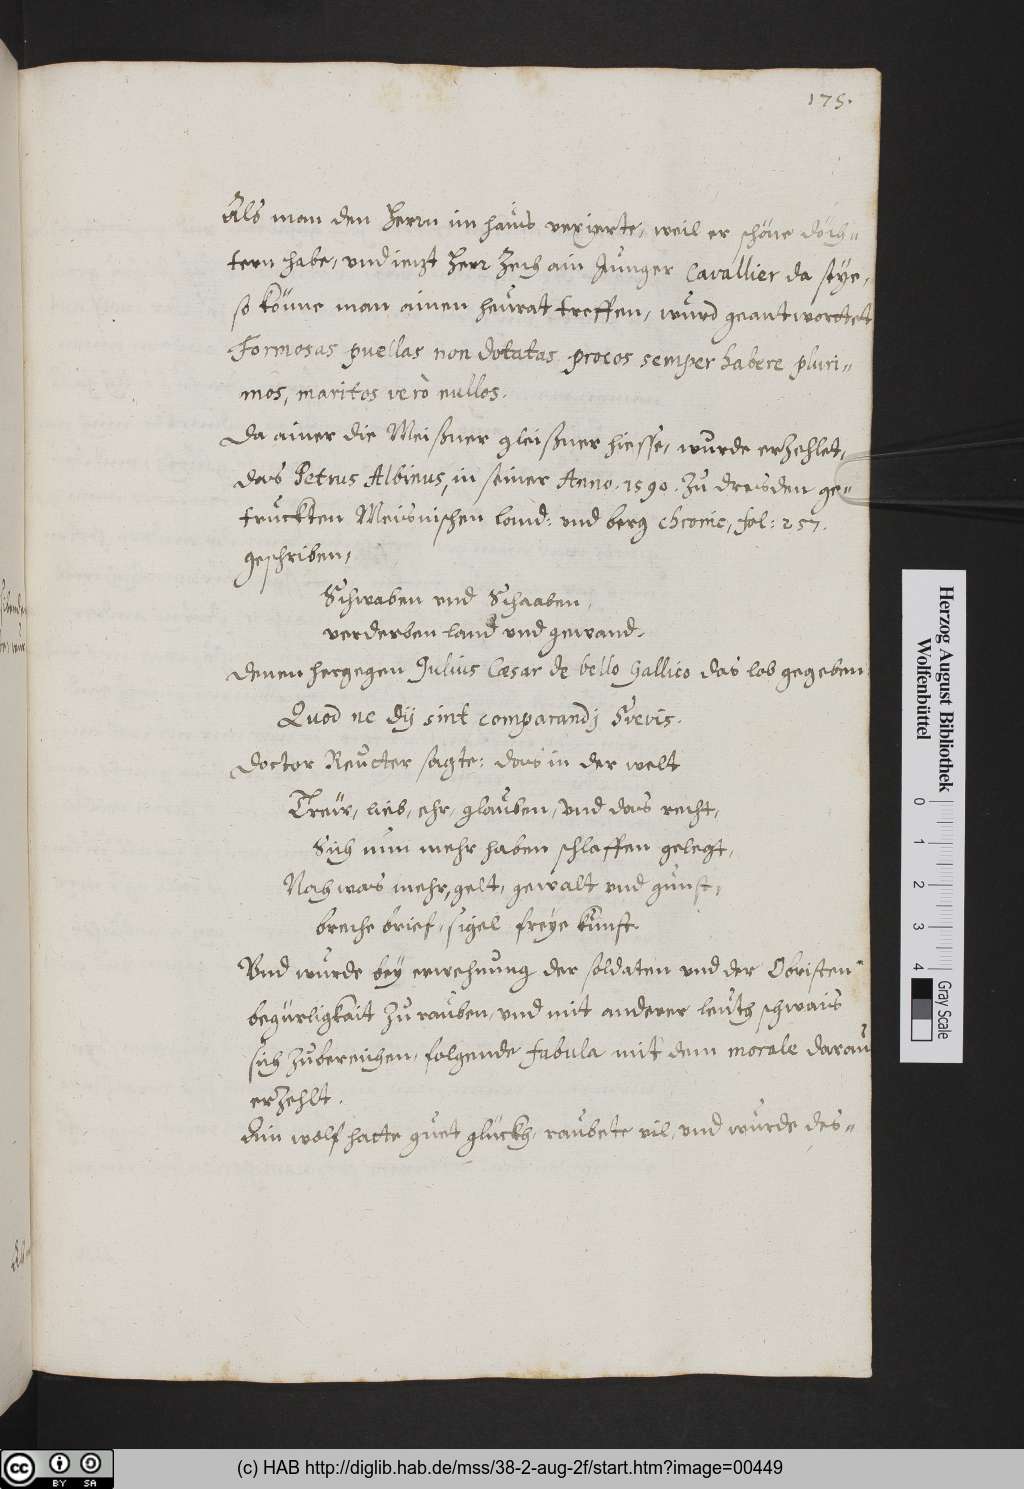 175.
Als man den Herrn im haus vexierte, weil er schöne döch=
tern habe, vnd iezt Herr Zech ain Junger Cavallier da seye,
so könne man ainen heurat treffen, wurd geantwortet
Formosas puellas non dotatas procos semper habere pluri=
mos, maritos vero nullos.
Da ainer die Meißner gleißner hiesse, wurde erzehlet,
das Petrus Albinus, in seiner Anno. 1590. zu dresden ge=
truckten Meisnischen land: vnd berg chronic, fol: 257.
geschriben,
Schwaben vnd Schaaben,
verderben land vnd gewand.
denen hergegen Julius Cæsar de bello Gallico das lob gegeben:
Quod ne dij sint comparandj Svevis.
doctor Reutter sagte: das in der welt
Treuw, lieb, ehr, glauben, vnd das recht,
Sich nun mehr haben schlaffen gelegt,
Nach was mehr, gelt, gewalt vnd gunst,
breche brief, sigel freye kunst.
Vnd wurde bey erwehnung der soldaten vnd der Obristen
begürligkait zu rauben, vnd mit anderer leuth schwais
sich zubereichen, folgende fabula mit dem morale darau
erzehlt.
Ain wolf hatte guet glückh, raubete vil, vnd wurde des=
Herzog August Bibliothek
Wolfenbüttel
0 1 2 3 4
Gray Scale
cc BY SA
(c) HAB http://diglib.hab.de/mss/38-2-aug-2f/start.htm?image=00449